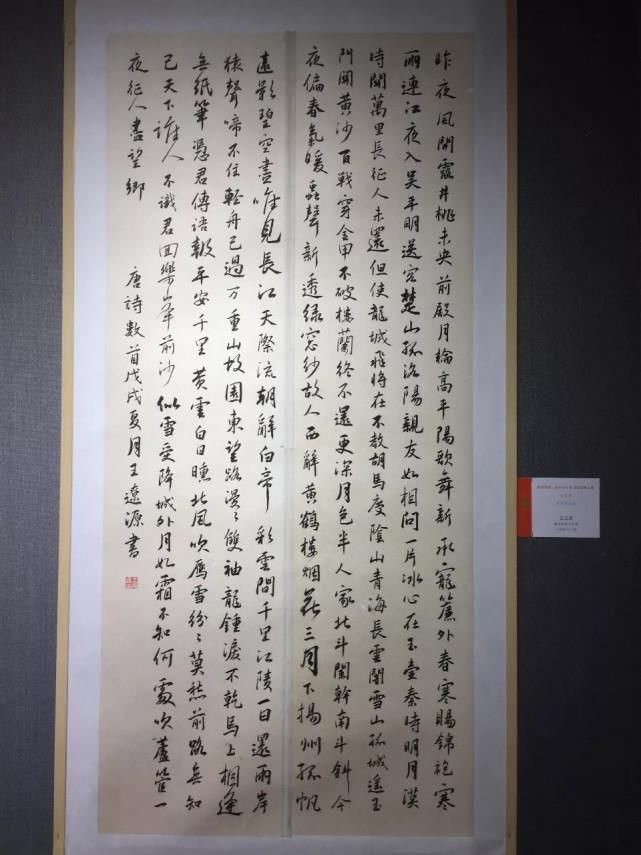 昨夜風開露井桃未央前殿月輪高平陽歌舞新承寵簾外春寒賜錦袍寒
雨連江夜入吴平明送客楚山孤洛陽親友如相問一片冰心在玉壺秦時明月漢
時關萬里長征人未還但使龍城飛將在不教胡馬度陰山青海長雲闇雪山孤城遥玉
門關黄沙百戰穿金甲不破樓蘭終不還更深月色半人家北斗闌幹南斗斜今
夜偏春氣暖蟲聲新透绿窓紗故人西辭黄鶴樓烟花三月下揚州孤帆
遠影碧空盡唯見長江天際流朝辭白帝彩雲間千里江陵一日還兩岸
猿聲啼不住輕舟已過万重山故園東望路漫々雙袖龍鍾淚不乾馬上相逢
無紙筆憑君傳語報平安千里黄雲白日曛北風吹雁雪紛々莫愁前路無知
己天下誰人不識君回樂峯前沙似雪受降城外月如霜不知何處吹蘆管一
夜征人盡望鄉 唐詩數首戊戌夏月王遼源書